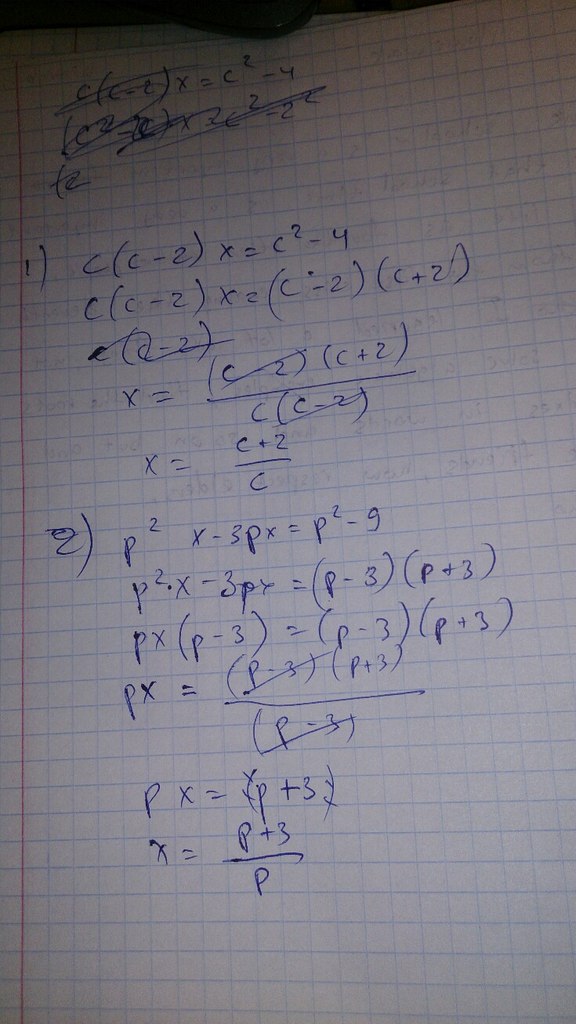 c(c-2)x=c²-4
(c²-2)x=c²-2²
(2
1) c(c-2)x=c²-4
c(c-2)x=(c-2)(c+2)
c(c-2)
x = (c-2)(c+2) / c(c-2)
x = c+2 / c
2) p² x-3px=p²-9
p²·x-3px=(p-3)(p+3)
px(p-3)=(p-3)(p+3)
px = (p-3)(p+3) / (p-3)
px=(p+3)
x = p+3 / p